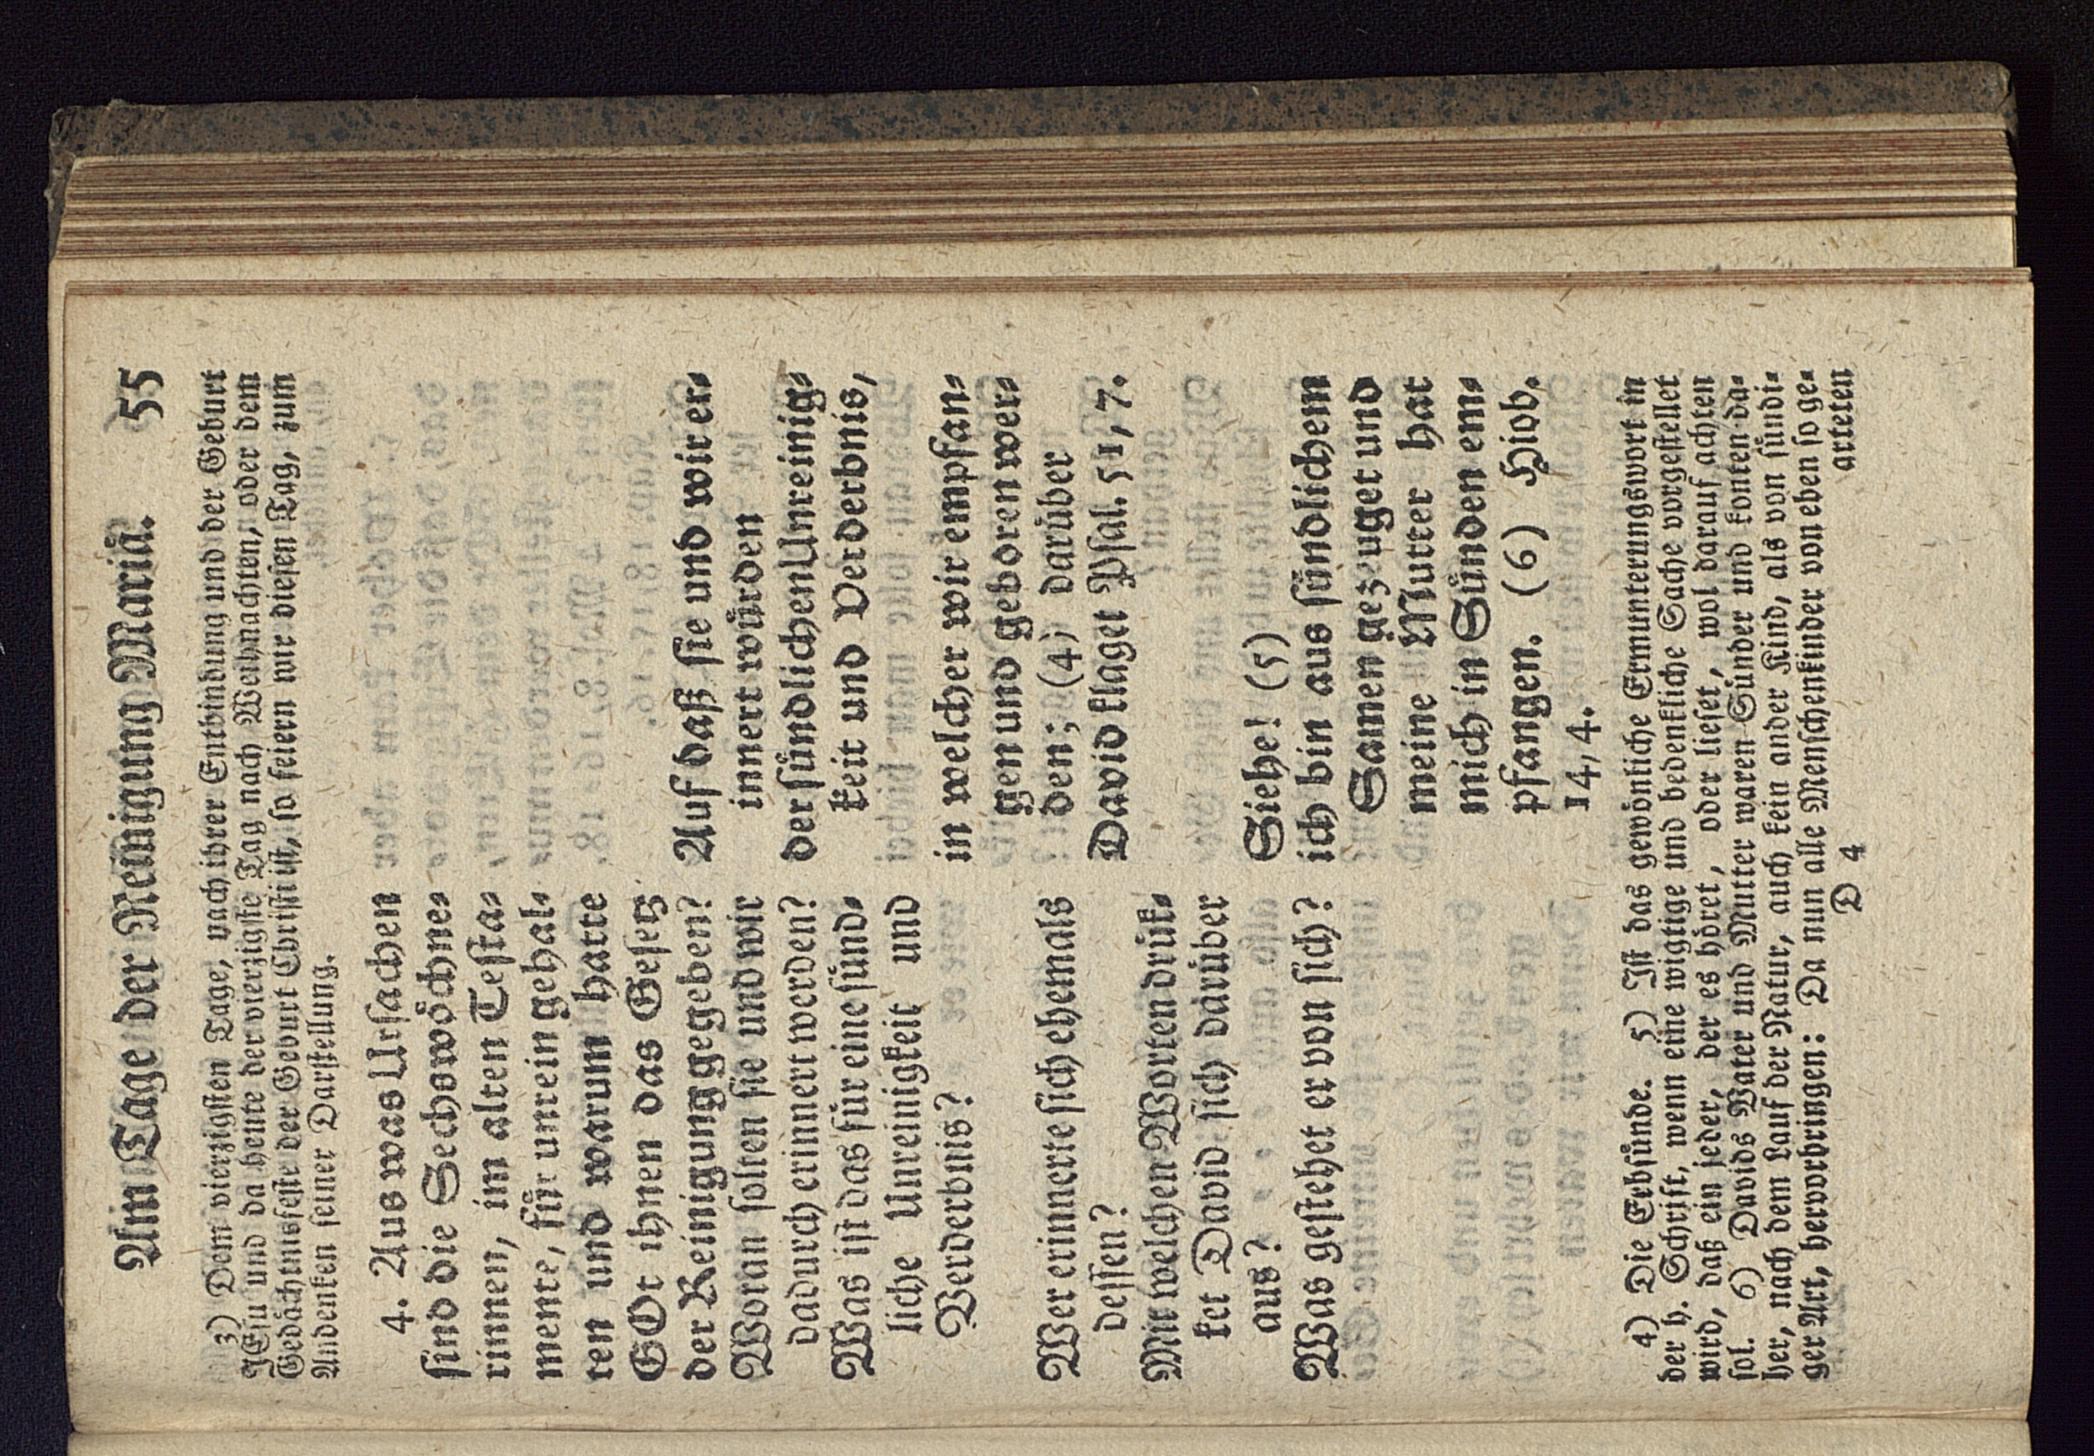 Am Tage der Reinigung Mariä. 55
3) Dem vierzigsten Tage, nach ihrer Entbindung und der Geburt
JEsu und da heute der vierzigste Tag nach Weihnachten, oder dem
Gedächtnisfeste der Geburt Christi ist, so feiern wir diesen Tag, zum
Andenken seiner Darstellung.
4. Aus was Ursachen
sind die Sechswöchne-
rinnen, im alten Testa-
mente, für unrein gehal-
ten und warum hatte
GOt ihnen das Gesetz
der Reinigung gegeben?
Woran solten sie und wir
dadurch erinnert werden?
Was ist das für eine sünd-
liche Unreinigkeit und
Verderbnis?
Wer erinnerte sich ehemals
dessen?
Mit welchen Worten drük-
ket David sich darüber
aus?
Was gestehet er von sich?
Auf daß sie und wir er-
innert würden
der sündlichen Unreinig-
keit und Verderbnis,
in welcher wir empfan-
gen und geboren wer-
den; (4) darüber
David klaget Psal. 51, 7.
Siehe! (5)
ich bin aus sündlichem
Samen gezeuget und
meine Mutter hat
mich in Sünden em-
pfangen. (6) Hiob.
14, 4.
4) Die Erbsünde. 5) Ist das gewönliche Ermunterungswort in
der h. Schrift, wenn eine wigtige und bedenkliche Sache vorgestellet
wird, daß ein jeder, der es höret, oder lieset, wol darauf achten
sol. 6) Davids Vater und Mutter waren Sünder und konten da-
her, nach dem Lauf der Natur, auch kein ander Kind, als von sündi-
ger Art, hervorbringen: Da nun alle Menschenkinder von eben so ge-
D 4 arteten